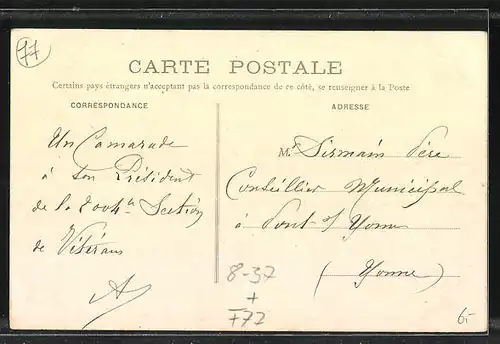 77
CARTE POSTALE
Certains pays étrangers n'acceptant pas la correspondance de ce côté, se renseigner à la Poste
CORRESPONDANCE
Un Camarade
à son Président
de la Section
de Vétérans
A
ADRESSE
M. Sirmain Père
Conseiller Municipal
à Pont s/ Yonne
(Yonne)
8-37
+
F77
6.-